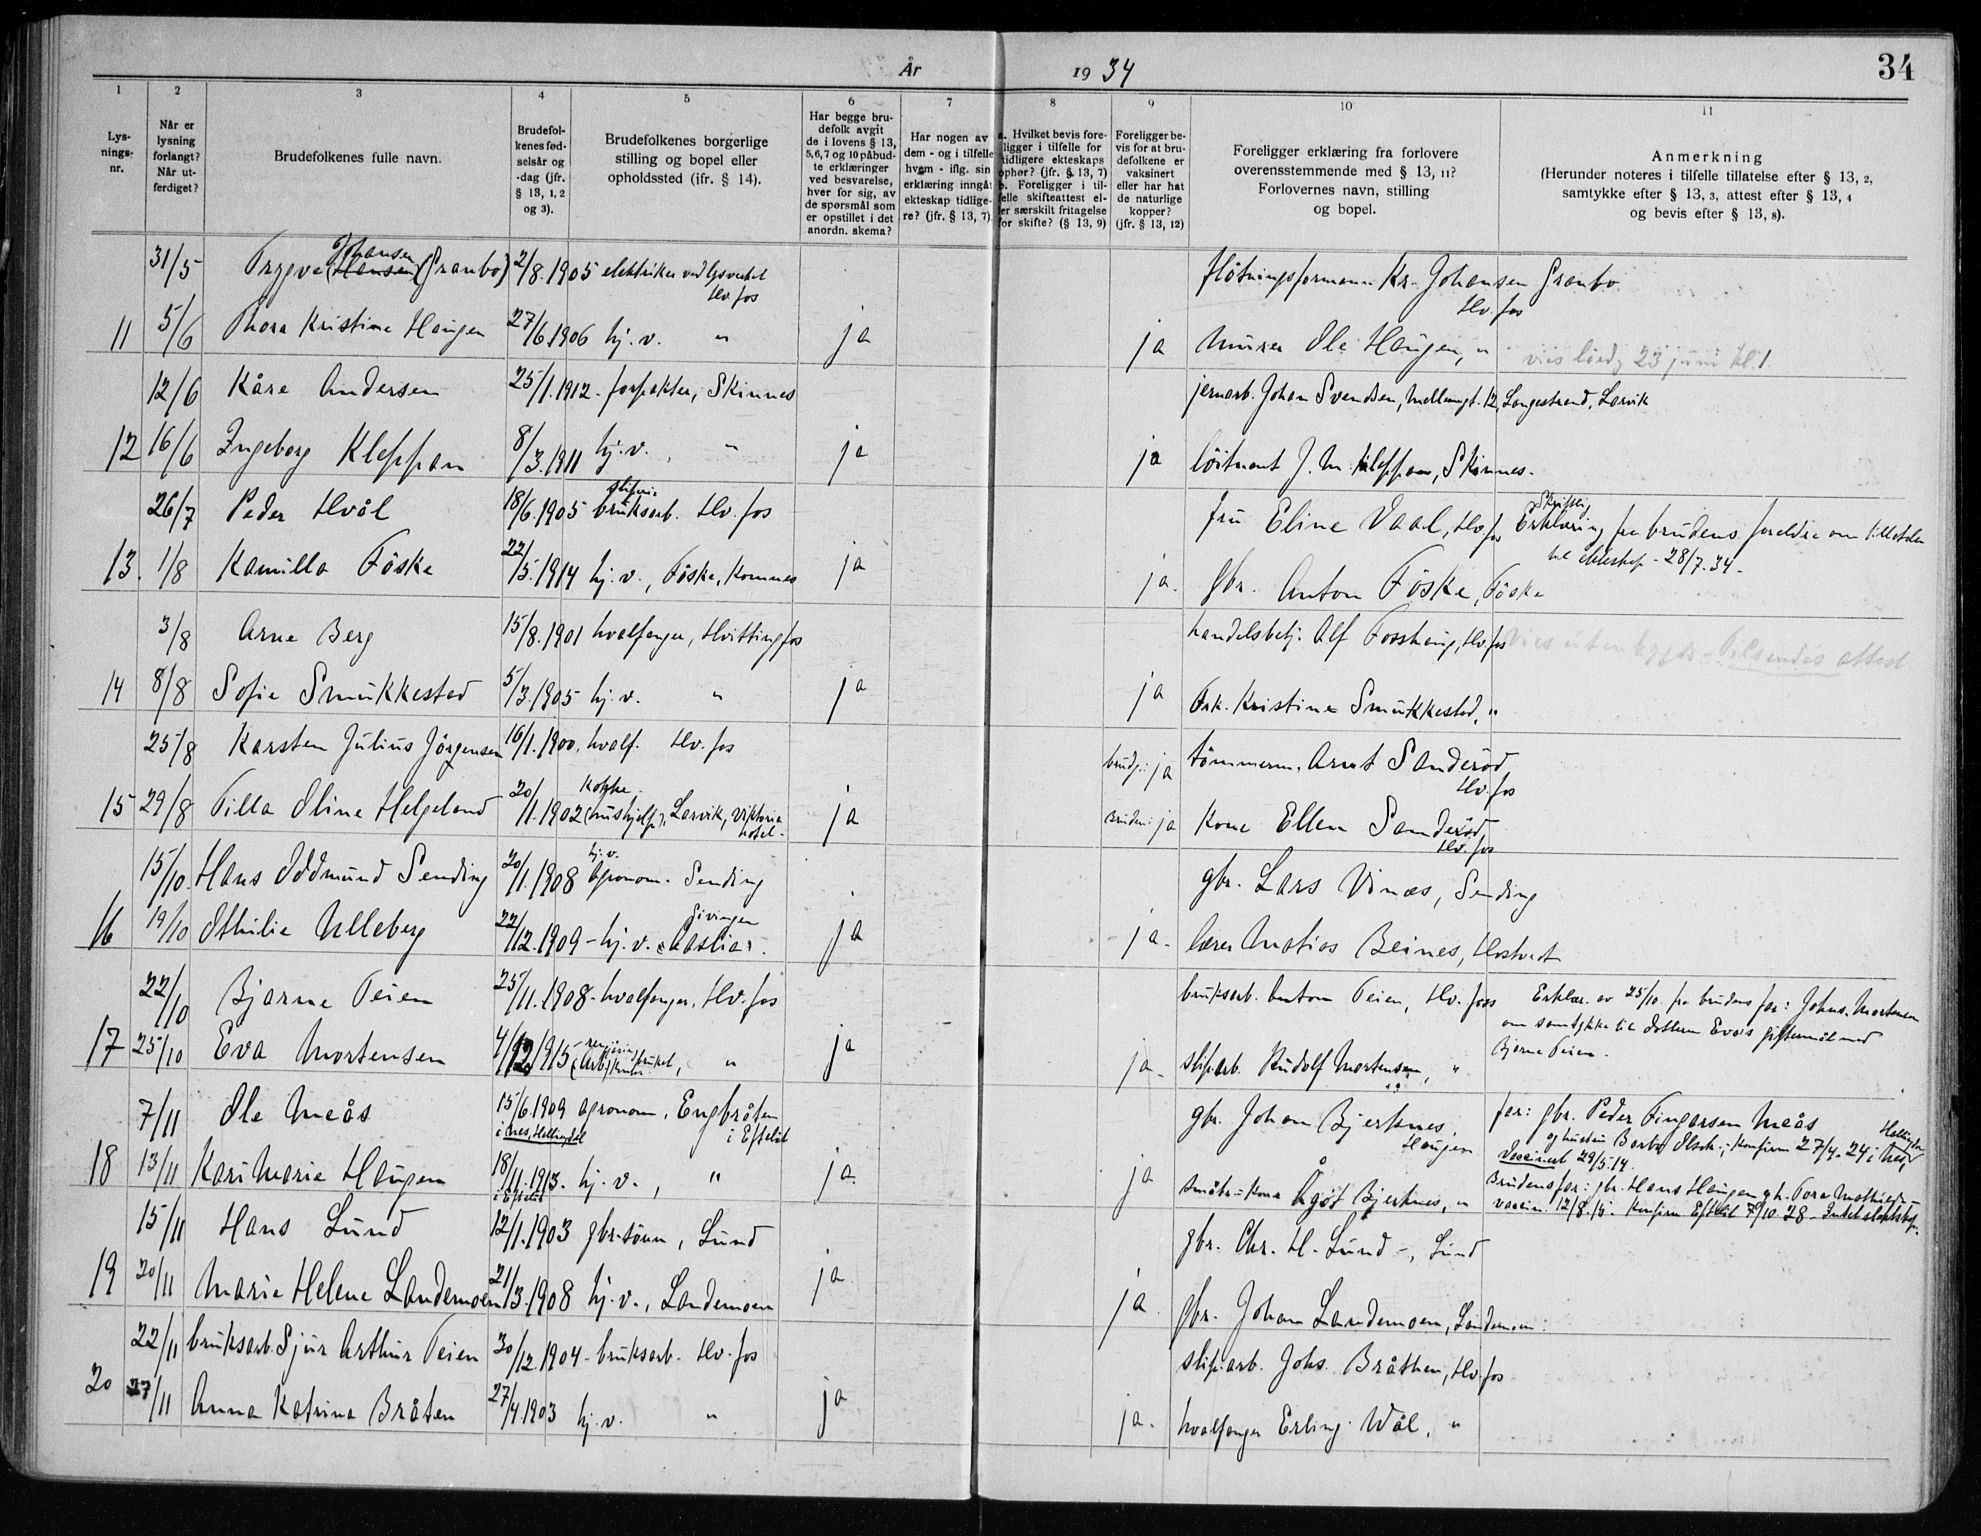 År 1934
34
1 2 3 4 5 6 7 8 9 10 11
Lys-
nings-
nr.
Når er
lysning
forlangt?
Når ut-
ferdiget?
Brudefolkenes fulle navn.
Brudefol-
kenes fød-
selsår og
-dag (jfr.
§ 13, 1, 2
og 3).
Brudefolkenes borgerlige
stilling og bopel eller
opholdssted (ifr. § 14).
Har begge bru-
defolk avgit
de i lovens § 13,
5,6,7 og 10 påbud-
te erklæringer
ved besvarelse,
hver for sig, av
de spørsmål som
er opstillet i det
anordn. skema?
Har nogen av
dem - og i tilfelle
hvem - iflg. sin
erklæring inngåt
ekteskap tidlige-
re? (jfr. § 13, 7).
a. Hvilket bevis fore-
ligger i tilfelle for
tidligere ekteskaps
ophør? (jfr. § 13, 7)
b. Foreligger i til-
felle skifteattest el-
ler særskilt fritagelse
for skifte? (§ 13, 9)
Foreligger be-
vis for at bru-
defolkene er
vaksinert
eller har hat
de naturlige
kopper?
(jfr. § 13, 12)
Foreligger erklæring fra forlovere
overensstemmende med § 13, 11?
Forlovernes navn, stilling
og bopel.
Anmerkning
(Herunder noteres i tilfelle tillatelse efter § 13, 2,
samtykke efter § 13, 3, attest efter § 13, 4
og bevis efter § 13, 8).
31/5 Trygve (Hansen) Johansen (Granbo) 2/8.1905 elektriker ved lysverket Hv.fos fløtningsformann Kr. Johansen Granbo Hv.fos
11 5/6 Thora Kristine Haugen 27/6.1906 hj.v. " ja ja murer Ole Haugen, " vies lørdag 23 juni kl. 1
12/6 Kåre Andersen 25/1.1912. forpakter, Skinnes jernarb. Johan Svendsen, Mellomgt. 12, Langestrand, Larvik
12 16/6 Ingeborg Kleppan 8/3.1911 hj.v. " ja ja løitnant J. M. Kleppan, Skinnes.
26/7 Peder Hvål 18/6.1905 sliperi bruksarb. Hv.fos fru Eline Vaal, Hv.fos Skriftlig Erklæring fra brudens foreldre om tillatelse
13. 1/8 Kamilla Föske 22/5.1914 hj.v., Föske, Komnes ja ja. gbr. Anton Föske, Föske til ekteskap - 28/7.34 -
3/8 Arne Berg 15/8.1901 hvalfanger, Hvittingfos handelsbetj. Alf Fosshaug, Hv.fos vies utenbygds - Tilsendes attest
14 8/8 Sofie Smukkestad 5/3.1905 hj.v. " ja ja Frk. Kristine Smukkestad, "
25/8 Karsten Julius Jörgensen 16/1.1900. hvalf. Hv.fos brudg.: ja tömmerm. Arnt Sanderöd Hv.fos
15 29/8 Tilla Oline Helgeland 20/1.1902 Kokke (hushjelp), Larvik, Viktoria hotel - ja bruden: ja Kone Ellen Sanderöd Hv.fos
15/10 Hans Oddmund Sending 20/1.1908 hj.v. Agronom. Sending gbr. Lars Vinæs, Sending
16 19/10 Othilie Ulleberg 22/12.1909 - hj.v. ja ja. lærer Matias Beines, Hostvedt
22/10 Bjarne Teien 25/11.1908 - hvalfanger, Hv.fos bruksarb. Anton Teien, Hv.foss Erklær. av 25/10. fra brudens far: Johns. Mortensen
17 25/10 Eva Mortensen 4/12 1915 - " ja ja - sliparb. Rudolf Mortensen, " om samtykke til datteren Eva's giftermål med
Bjarne Teien.
7/11 Ole Meås 15/6.1909 i Nes, Hallingdal agronom, Engbråten i Efteløt gbr. Johan Bjerknes, Haugen far: gbr. Peder Fingarsen Meås
og hustru Barbo Olsdt.; Konfirm 27/4.24 i Nes, Hallingdal
Vaccinert 29/5.14.
18 13/11 Kari Marie Haugen 18/11.1913. i Efteløt hj.v., " ja. ja småbr.-kone Ågot Bjerknes, " Brudens far: gbr. Hans Haugen
vaccin 12/8.15. Konfirm Efteløt 7/10.28 -
15/11 Hans Lund 12/1.1903 gbr.-sönn, Lund gbr. Chr. H. Lund -, Lund
19 20/11 Marie Helene Landemoen 21/3.1908 hj.v., Landemoen ja ja. gbr. Johan Landemoen, Landemoen.
22/11 bruksarb. Sjur Arthur Teien 30/12.1904 - bruksarb. Hv.fos slip.arb. Johs. Bråthen, Hv.fos
20 27/11 Anna Katrina Bråten 27/4.1903 hj.v. " ja ja. hvalfanger Erling Wål, "